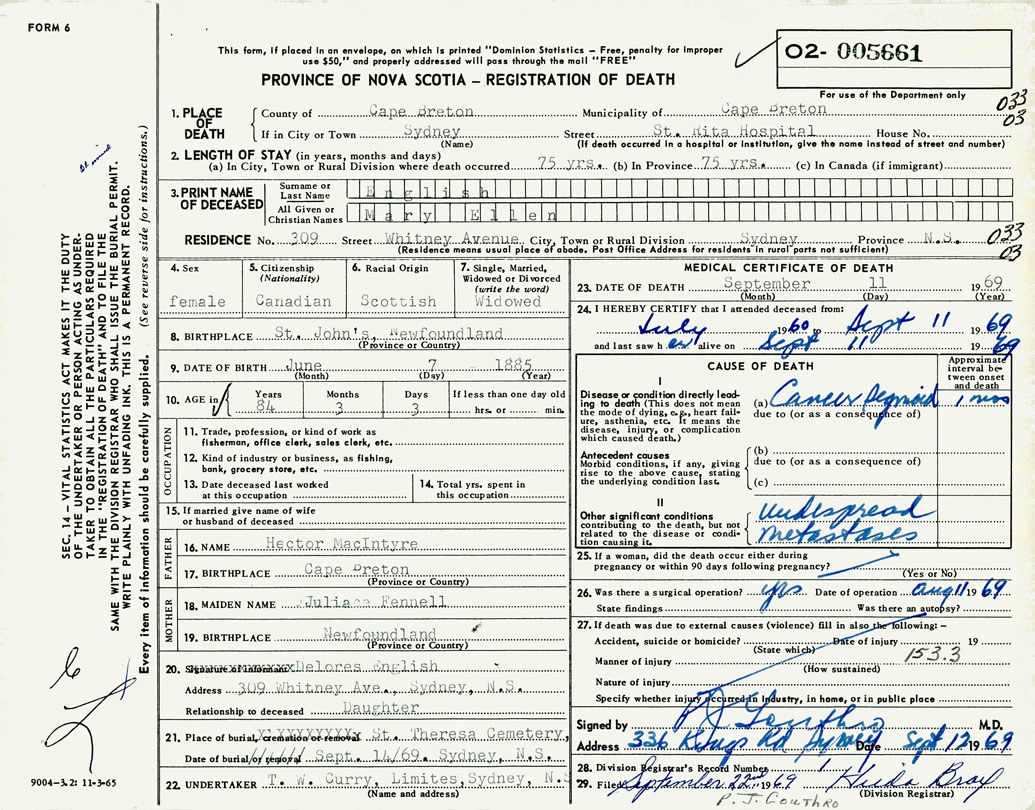 FORM 6
This form, if placed in an envelope, on which is printed "Dominion Statistics — Free, penalty for improper
use $50," and properly addressed will pass through the mail "FREE"
PROVINCE OF NOVA SCOTIA — REGISTRATION OF DEATH
02- 005661
For use of the Department only
033
03
1. PLACE OF DEATH
County of Cape Breton Municipality of Cape Breton
If in City or Town Sydney Street St. Rita Hospital House No.
(Name) (If death occurred in a hospital or institution, give the name instead of street and number)
2. LENGTH OF STAY (in years, months and days)
(a) In City, Town or Rural Division where death occurred 75 yrs. (b) In Province 75 yrs. (c) In Canada (if immigrant)
3. PRINT NAME OF DECEASED
Surname or Last Name English
All Given or Christian Names Mary Ellen
033
03
RESIDENCE No. 309 Street Whitney Avenue City, Town or Rural Division Sydney Province N.S.
(Residence means usual place of abode. Post Office Address for residents in rural parts not sufficient)
4. Sex
female
5. Citizenship
(Nationality)
Canadian
6. Racial Origin
Scottish
7. Single, Married,
Widowed or Divorced
(write the word)
Widowed
8. BIRTHPLACE St. John's, Newfoundland
(Province or Country)
9. DATE OF BIRTH June 7 1885
(Month) (Day) (Year)
10. AGE in
Years Months Days If less than one day old
84 3 3 hrs. or min.
OCCUPATION
11. Trade, profession, or kind of work as
fisherman, office clerk, sales clerk, etc.
12. Kind of industry or business, as fishing,
bank, grocery store, etc.
13. Date deceased last worked
at this occupation
14. Total yrs. spent in
this occupation
15. If married give name of wife
or husband of deceased
FATHER
16. NAME Hector MacIntyre
17. BIRTHPLACE Cape Breton
(Province or Country)
MOTHER
18. MAIDEN NAME Fennell
19. BIRTHPLACE Newfoundland
(Province or Country)
20. Signature of informant Delores English
Address 309 Whitney Ave., Sydney, N.S.
Relationship to deceased Daughter
21. Place of burial, cremation or removal St. Theresa Cemetery,
Date of burial or removal Sept. 14/69. Sydney, N.S.
22. UNDERTAKER T. W. Curry, Limites, Sydney, N.S
(Name and address)
MEDICAL CERTIFICATE OF DEATH
23. DATE OF DEATH September 11 1969
(Month) (Day) (Year)
24. I HEREBY CERTIFY that I attended deceased from:
July 1960 to Sept 11 1969
and last saw her alive on Sept 11 1969
CAUSE OF DEATH
Approximate
interval be-
tween onset
and death
I
Disease or condition directly lead-
ing to death (This does not mean
the mode of dying, e.g., heart fail-
ure, asthenia, etc. It means the
disease, injury, or complication
which caused death.)
(a) Cancer Sigmoid 1 mos
due to (or as a consequence of)
Antecedent causes
Morbid conditions, if any, giving
rise to the above cause, stating
the underlying condition last.
(b)
due to (or as a consequence of)
(c)
II
Other significant conditions
contributing to the death, but not
related to the disease or condi-
tion causing it.
widespread
metastases
25. If a woman, did the death occur either during
pregnancy or within 90 days following pregnancy?
(Yes or No)
26. Was there a surgical operation? yes Date of operation Aug 11 1969
State findings Was there an autopsy?
27. If death was due to external causes (violence) fill in also the following: —
Accident, suicide or homicide? Date of injury 19
(State which)
153.3
Manner of injury
(How sustained)
Nature of injury
Specify whether injury occurred in Industry, in home, or in public place
Signed by P J Gouthro M.D.
Address 336 Kings Rd Sydney Date Sept 12 1969
28. Division Registrar's Record Number
29. Filed September 22nd 1969 Huida Bray
(Division Registrar)
P. J. GOUTHRO
SEC. 14 — VITAL STATISTICS ACT MAKES IT THE DUTY
OF THE UNDERTAKER OR PERSON ACTING AS UNDER-
TAKER TO OBTAIN ALL THE PARTICULARS REQUIRED
IN THE "REGISTRATION OF DEATH" AND TO FILE THE
SAME WITH THE DIVISION REGISTRAR WHO SHALL ISSUE THE BURIAL PERMIT.
WRITE PLAINLY WITH UNFADING INK. THIS IS A PERMANENT RECORD.
Every item of information should be carefully supplied. (See reverse side for instructions.)
9004-3.2: 11-3-65